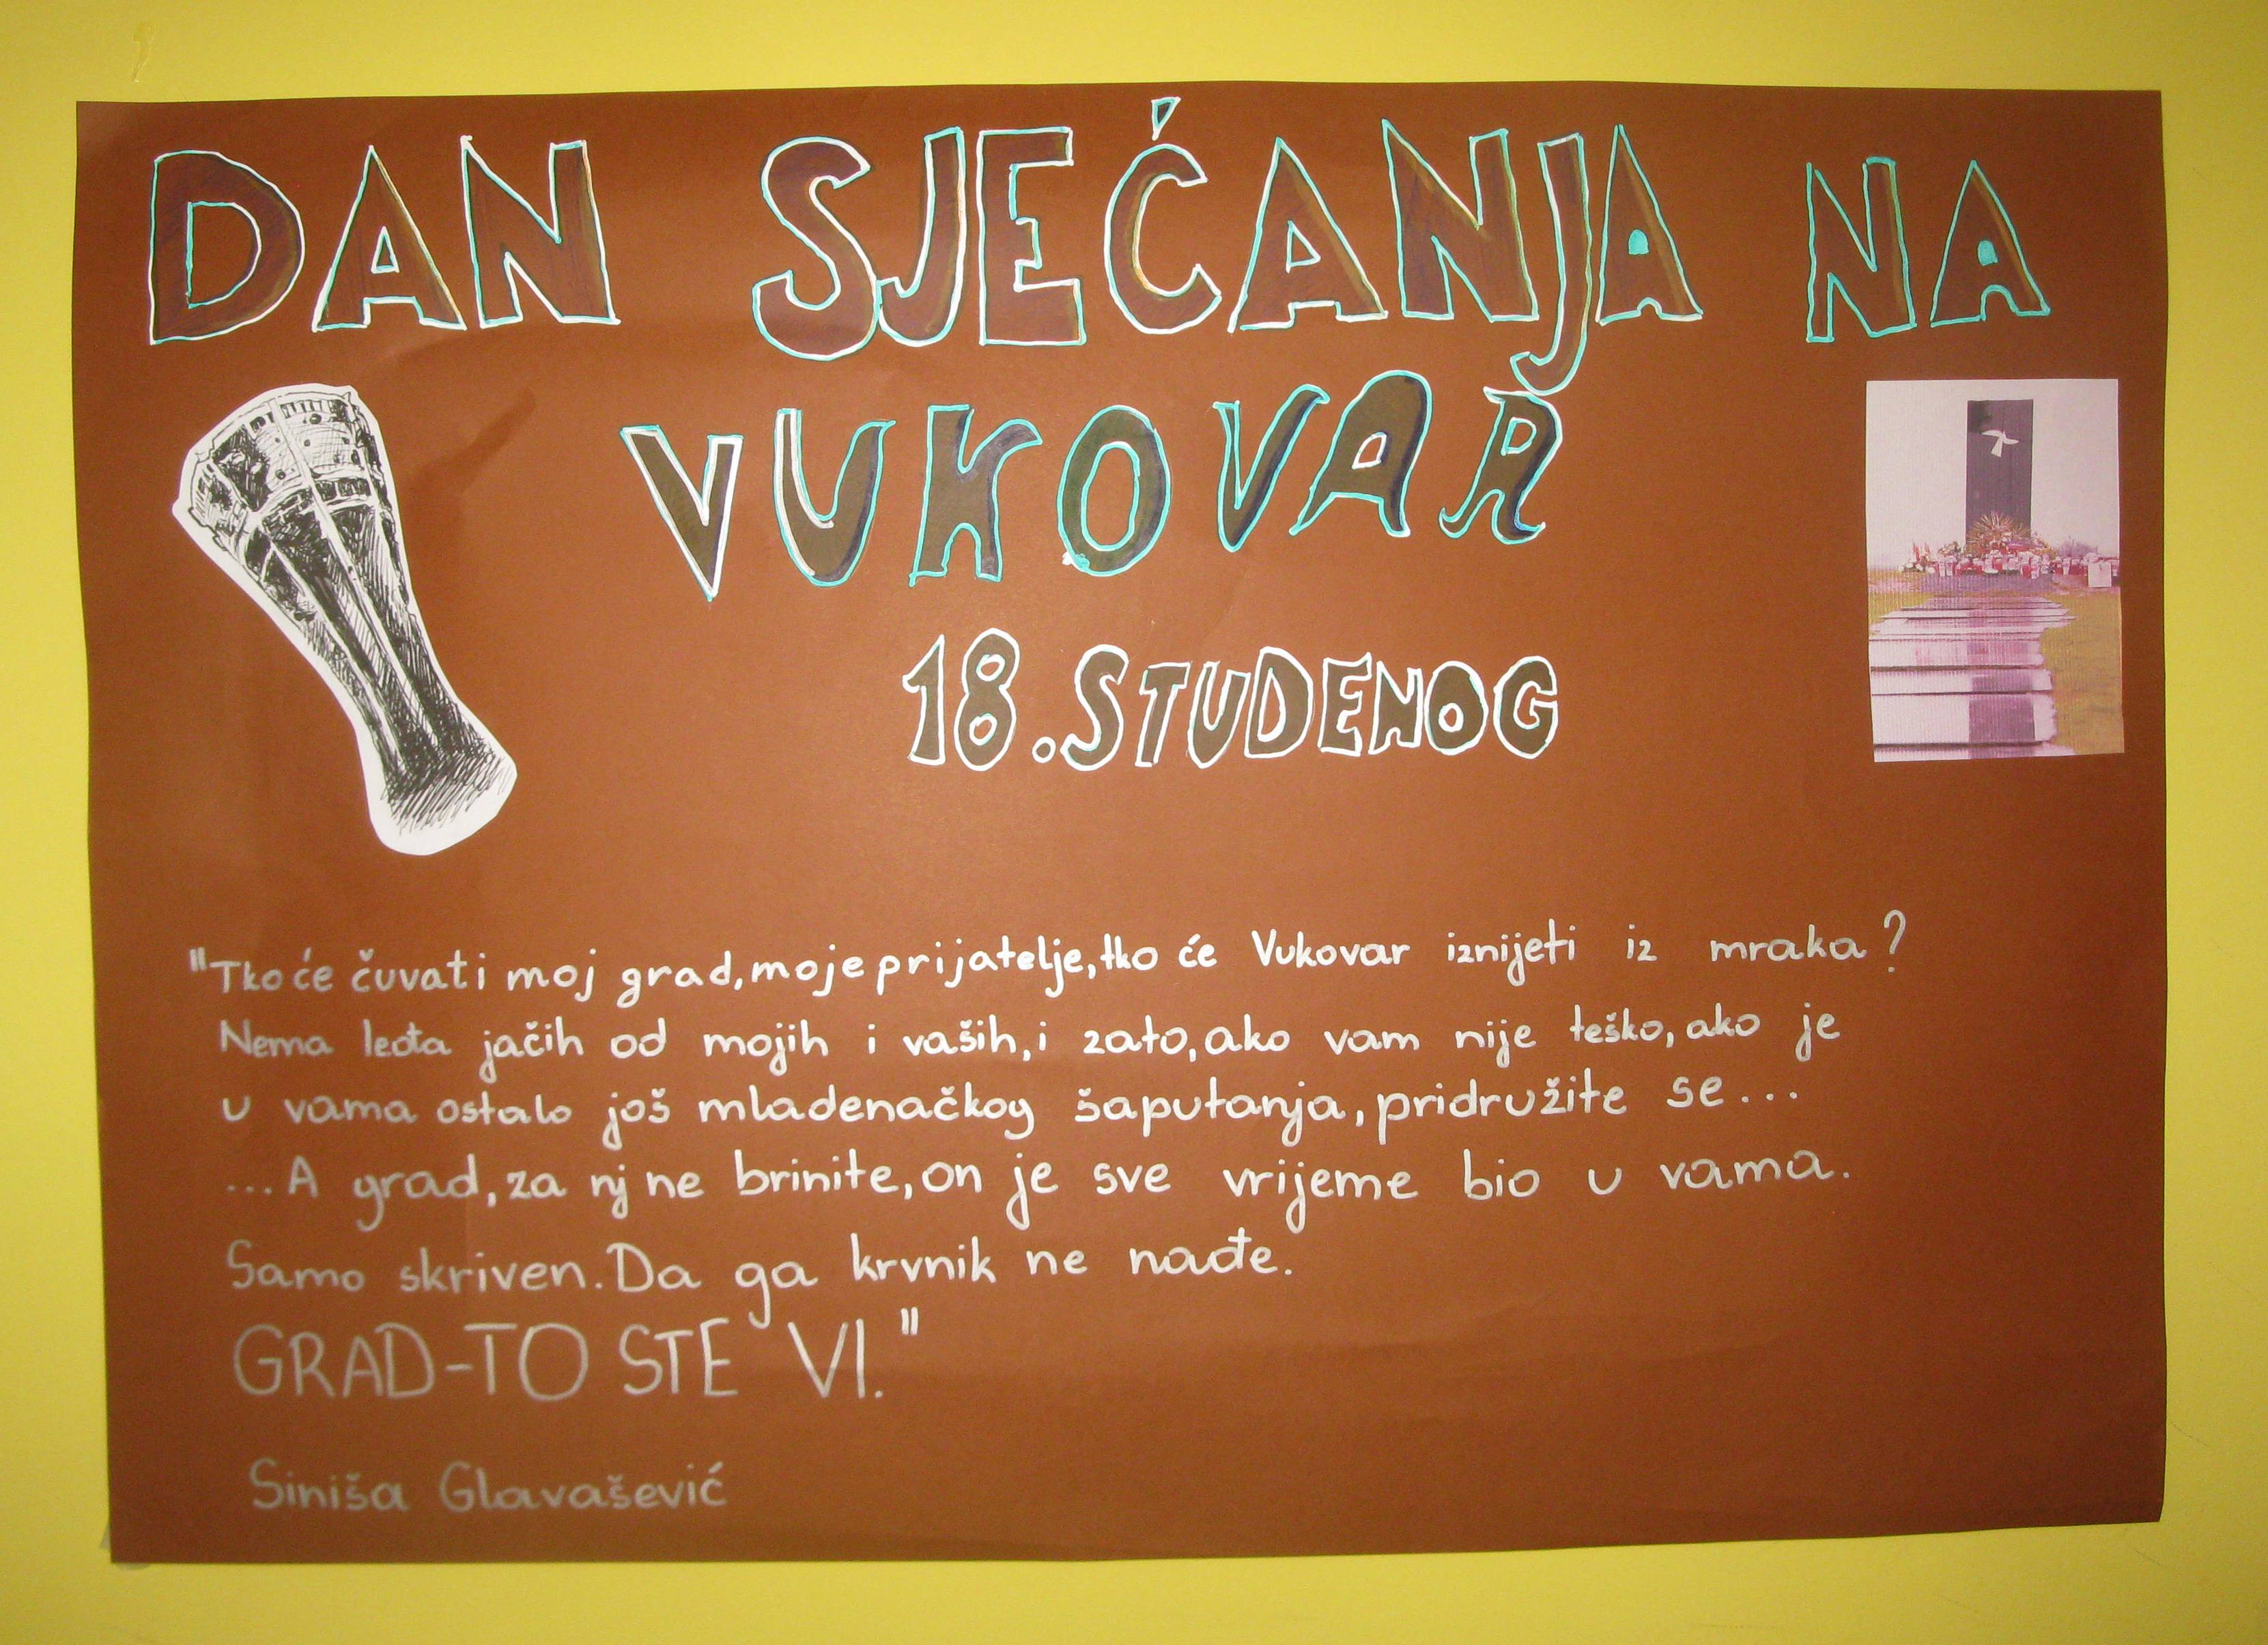 DAN SJEĆANJA NA
VUKOVAR
18.STUDENOG
"Tko će čuvati moj grad,moje prijatelje,tko će Vukovar iznijeti iz mraka?
Nema leđa jačih od mojih i vaših,i zato,ako vam nije teško,ako je
u vama ostalo još mladenačkog šaputanja,pridružite se...
...A grad,za nj ne brinite,on je sve vrijeme bio u vama.
Samo skriven.Da ga krvnik ne nađe.
GRAD-TO STE VI."
Siniša Glavašević